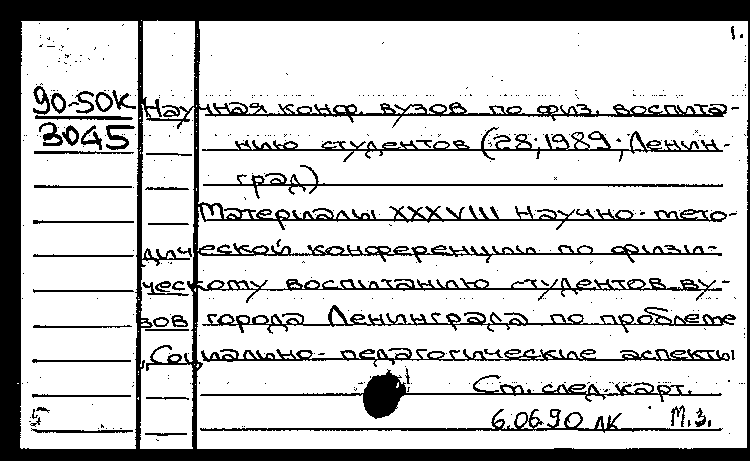 1.
90-50к Научная конф. вузов по физ. воспита-
3045 нию студентов (28; 1989; Ленин-
град)
Материалы XXXVIII Научно-мето-
дической конференции по физи-
ческому воспитанию студентов ву-
зов города Ленинграда по проблеме
„Социально-педагогические аспекты
См. след. карт.
6.06.90 ЛК М.З.